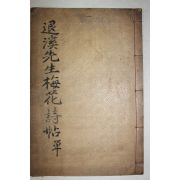 退溪先生梅花詩帖單